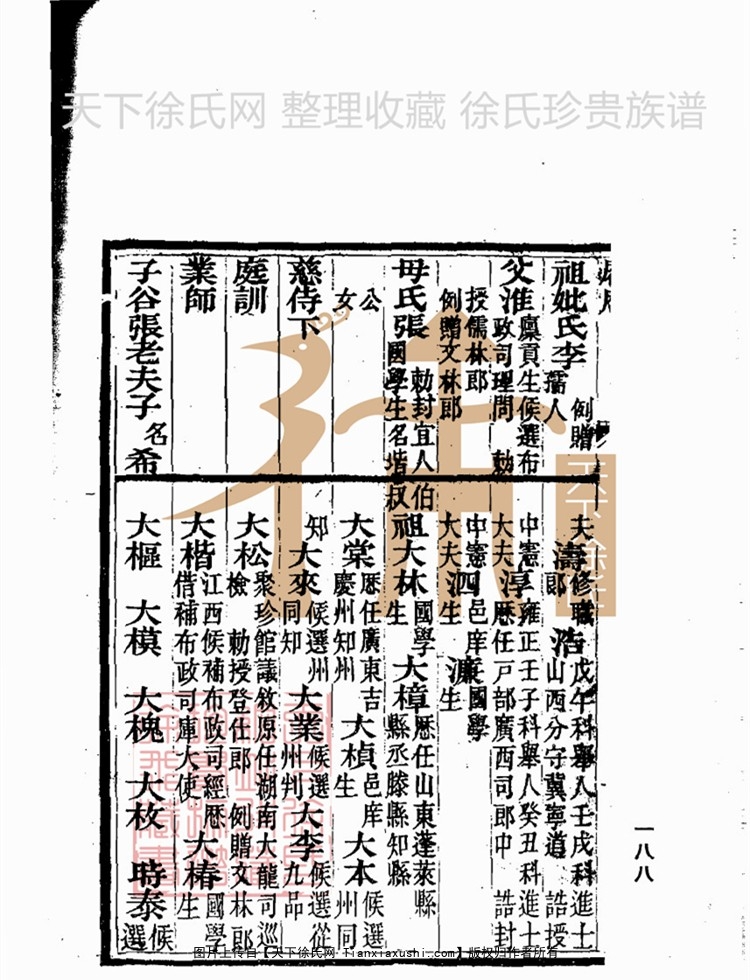 天下徐氏网 整理收藏 徐氏珍贵族谱
祖妣氏李 例贈孺人
父淮 廩貢生候選布政司理問 勅
授儒林郎
例贈文林郎
母氏張 勅封宜人 國學生名堦
公
女
慈侍下
庭訓
業師
子谷張老夫子 名希
夫 濤 修職郎 浩 戊午科舉人壬戌科進士山西分守冀寧道 誥授
中憲大夫 淳 雍正壬子科舉人癸丑科進士歷任戸部廣西司郎中 誥封
中憲大夫 泗 邑庠生 濂 國學生
伯叔祖 大林 國學生 大樟 歷任山東蓬萊縣縣丞滕縣知縣
大棠 歷任廣東吉慶州知州 大楨 邑庠生 大本 候選州同
知 大來 候選州同知 大業 候選州判 大李 候選從九品
大松 聚珍館議敘原任湖南大龍司巡檢 勅授登仕郎 例贈文林郎
大楷 江西候補布政司經歷借補布政司庫大使 大椿 國學生
大樞 大模 大槐 大枚 時泰 候選
一八八
图片上传自【天下徐氏网 tianxiaxushi.com】版权归作者所有